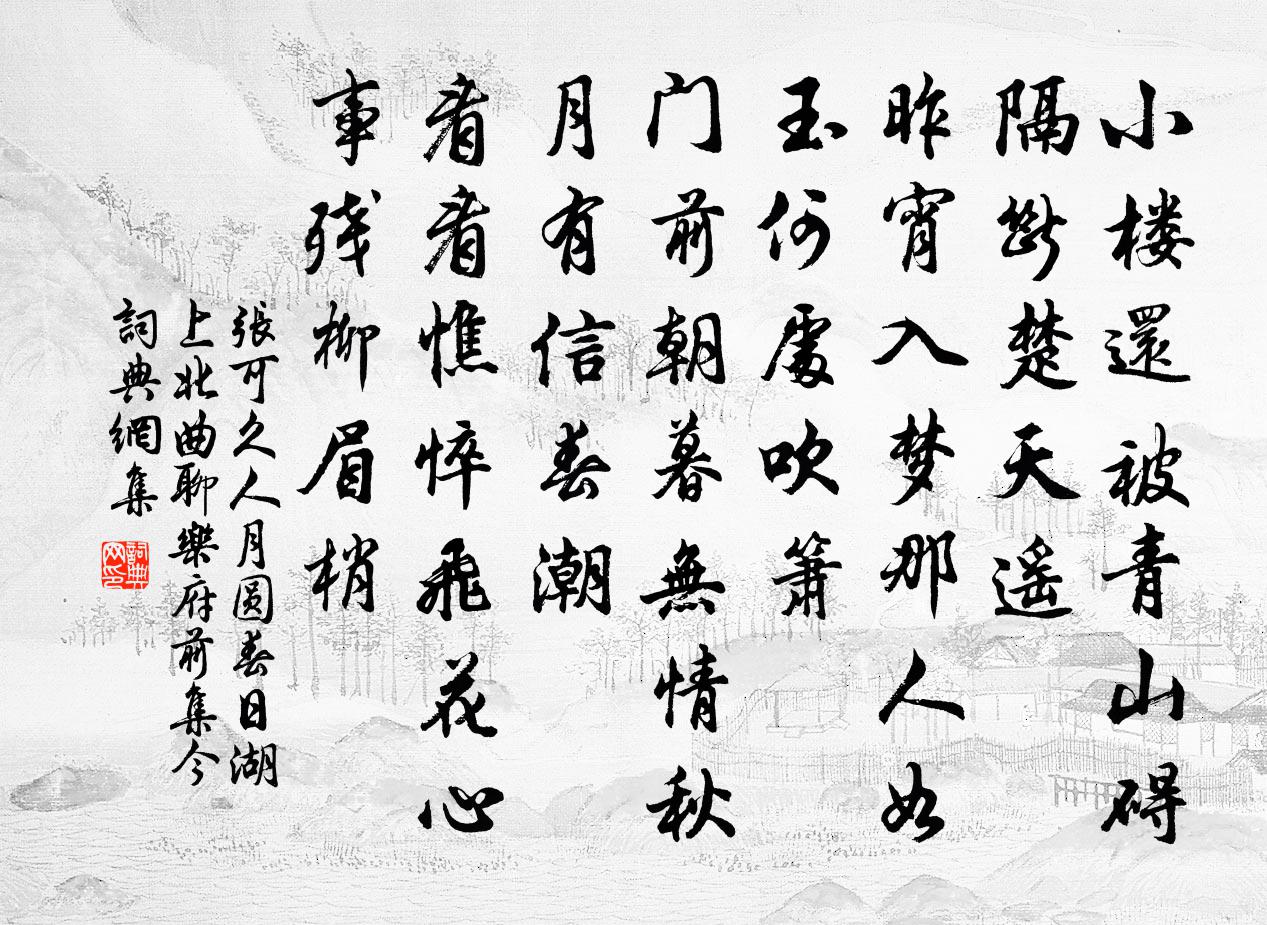 小楼還被青山碍
隔断楚天遥
昨宵入梦那人如
玉何處吹箫
门前朝暮無情秋
月有信春潮
看看憔悴飛花心
事残柳眉梢
張可久人月圆春日湖
上北曲聊樂府前集今
詞典網集
詞典网印